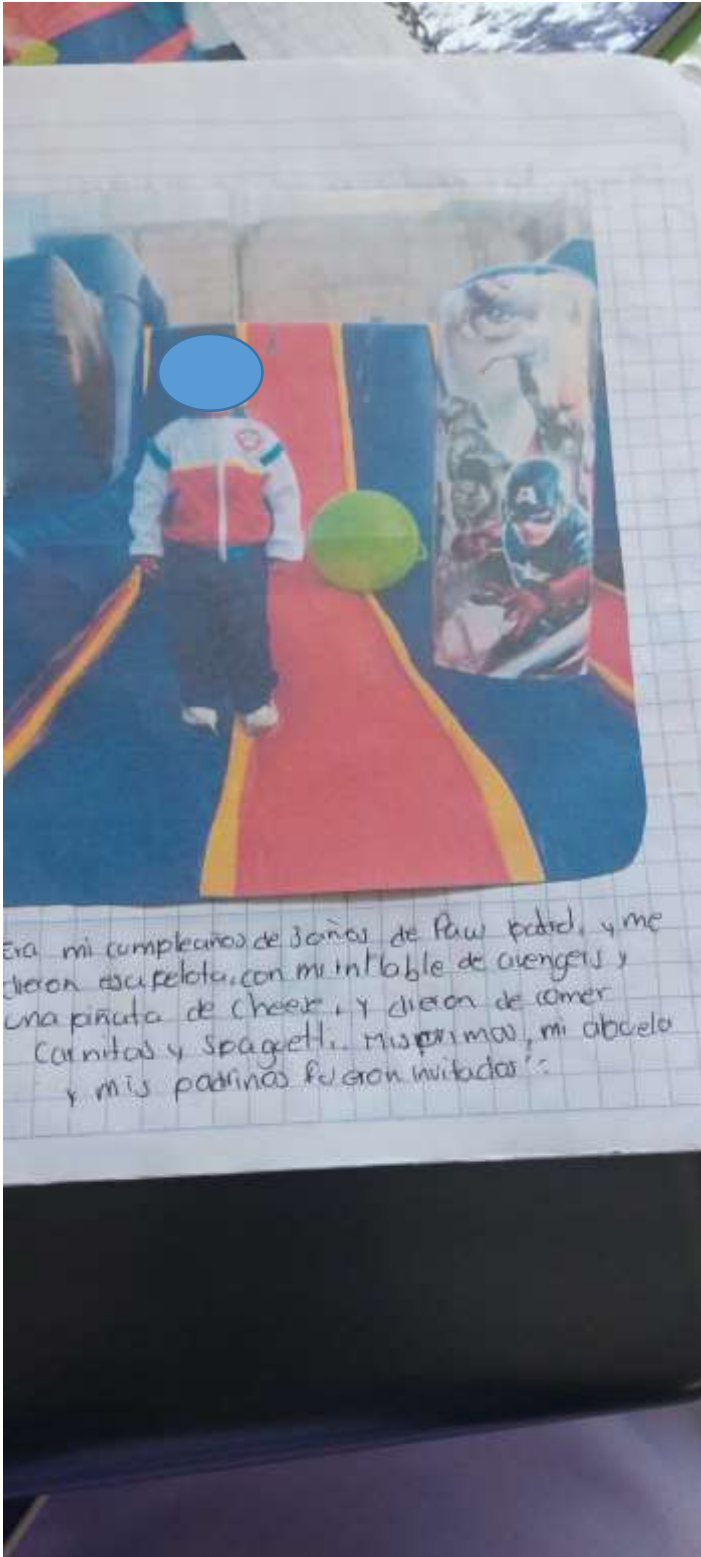 Era mi cumpleaños de 3 años de Paw patrol, y me
dieron esa pelota, con mi inflable de avengers y
una piñata de Cheese, y dieron de comer
Carnitas y Spaguetti. Mis primos, mi abuelo
y mis padrinos fueron invitados